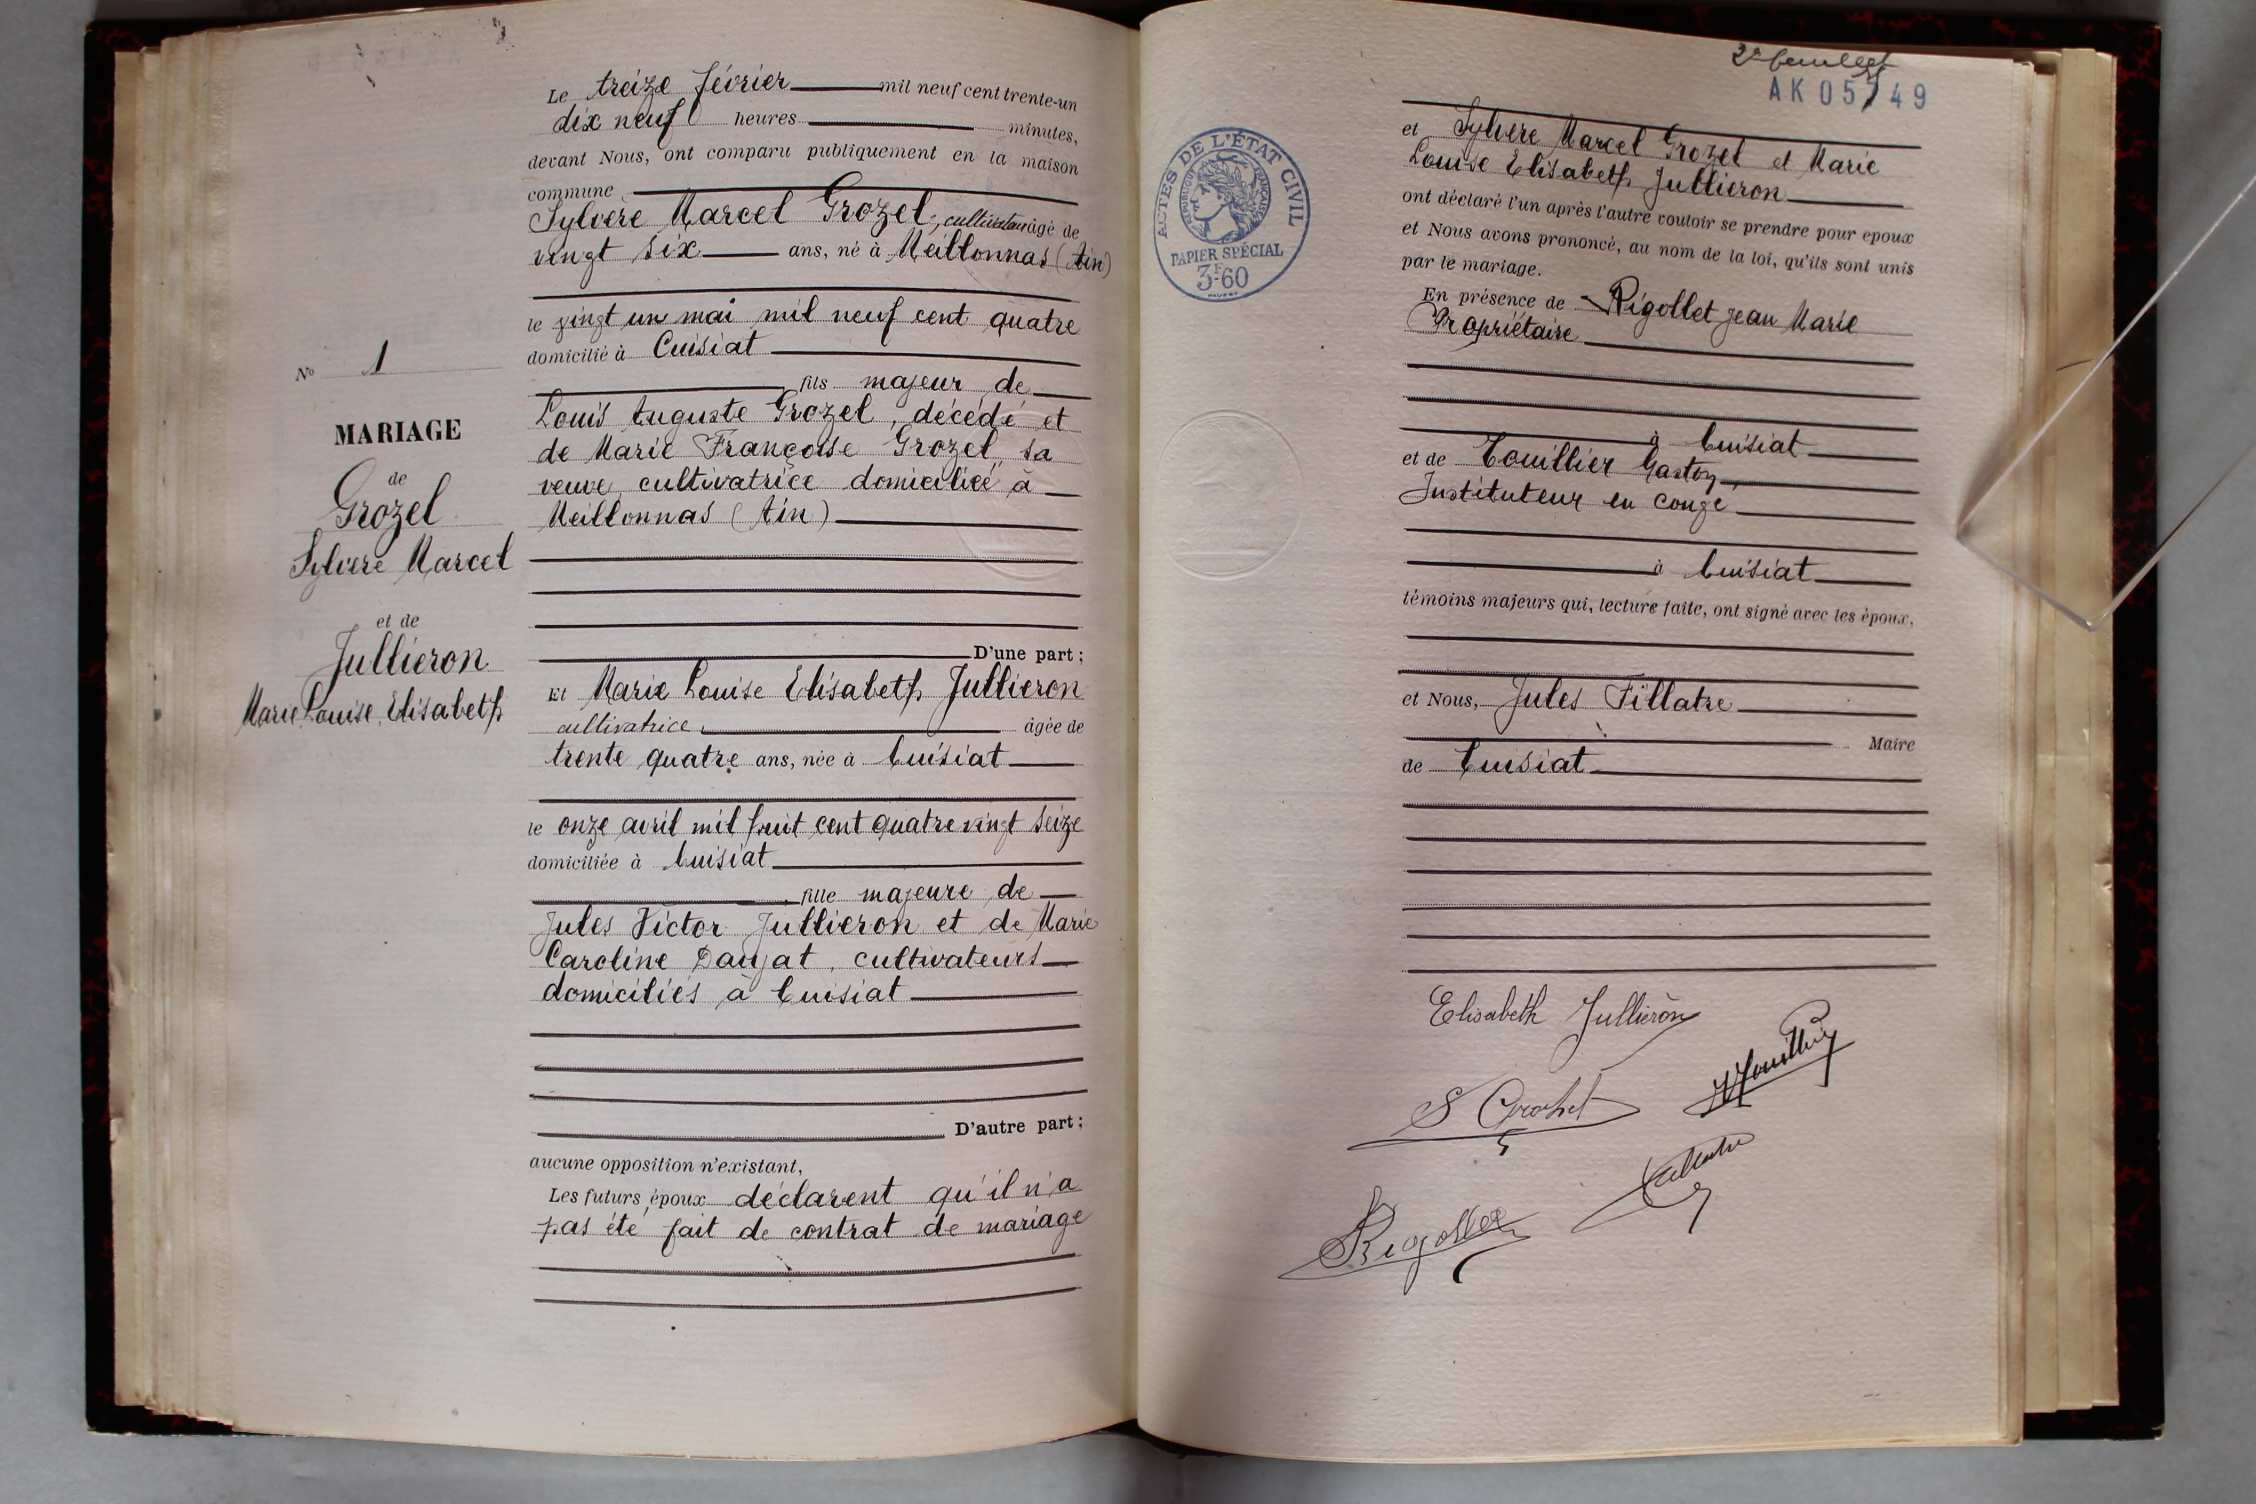 Le treize février mil neuf cent trente-un
dix neuf heures minutes,
devant Nous, ont comparu publiquement en la maison
commune
Sylvère Marcel Grozel, cultivateur âgé de
vingt six ans, né à Meillonnas (Ain)
le vingt un mai mil neuf cent quatre
domicilié à Cuisiat
fils majeur de
Louis Auguste Grozel, décédé et
de Marie Françoise Grozel, sa
veuve, cultivatrice domiciliée à
Meillonnas (Ain)
D'une part;
Et Marie Louise Elisabeth Jullieron
cultivatrice âgée de
trente quatre ans, née à Cuisiat
le onze avril mil huit cent quatre vingt seize
domiciliée à Cuisiat
fille majeure de
Jules Victor Jullieron et de Marie
Caroline Daujat, cultivateurs
domiciliés à Cuisiat
D'autre part;
aucune opposition n'existant,
Les futurs époux déclarent qu'il n'a
pas été fait de contrat de mariage
No 1
MARIAGE
de
Grozel
Sylvère Marcel
et de
Jullieron
Marie Louise, Elisabeth
2e feuillet
AK 05749
ACTES DE L'ÉTAT CIVIL
RÉPUBLIQUE FRANÇAISE
PAPIER SPÉCIAL
3F60
et Sylvère Marcel Grozel et Marie
Louise Elisabeth Jullieron
ont déclaré l'un après l'autre vouloir se prendre pour époux
et Nous avons prononcé, au nom de la loi, qu'ils sont unis
par le mariage.
En présence de Rigollet Jean Marie
Propriétaire
à Cuisiat
et de Touillier Gaston,
Instituteur en congé
à Cuisiat
témoins majeurs qui, lecture faite, ont signé avec les époux,
et Nous, Jules Fillatre
Maire
de Cuisiat
Elisabeth Jullièron
S Grozel
Rigollet